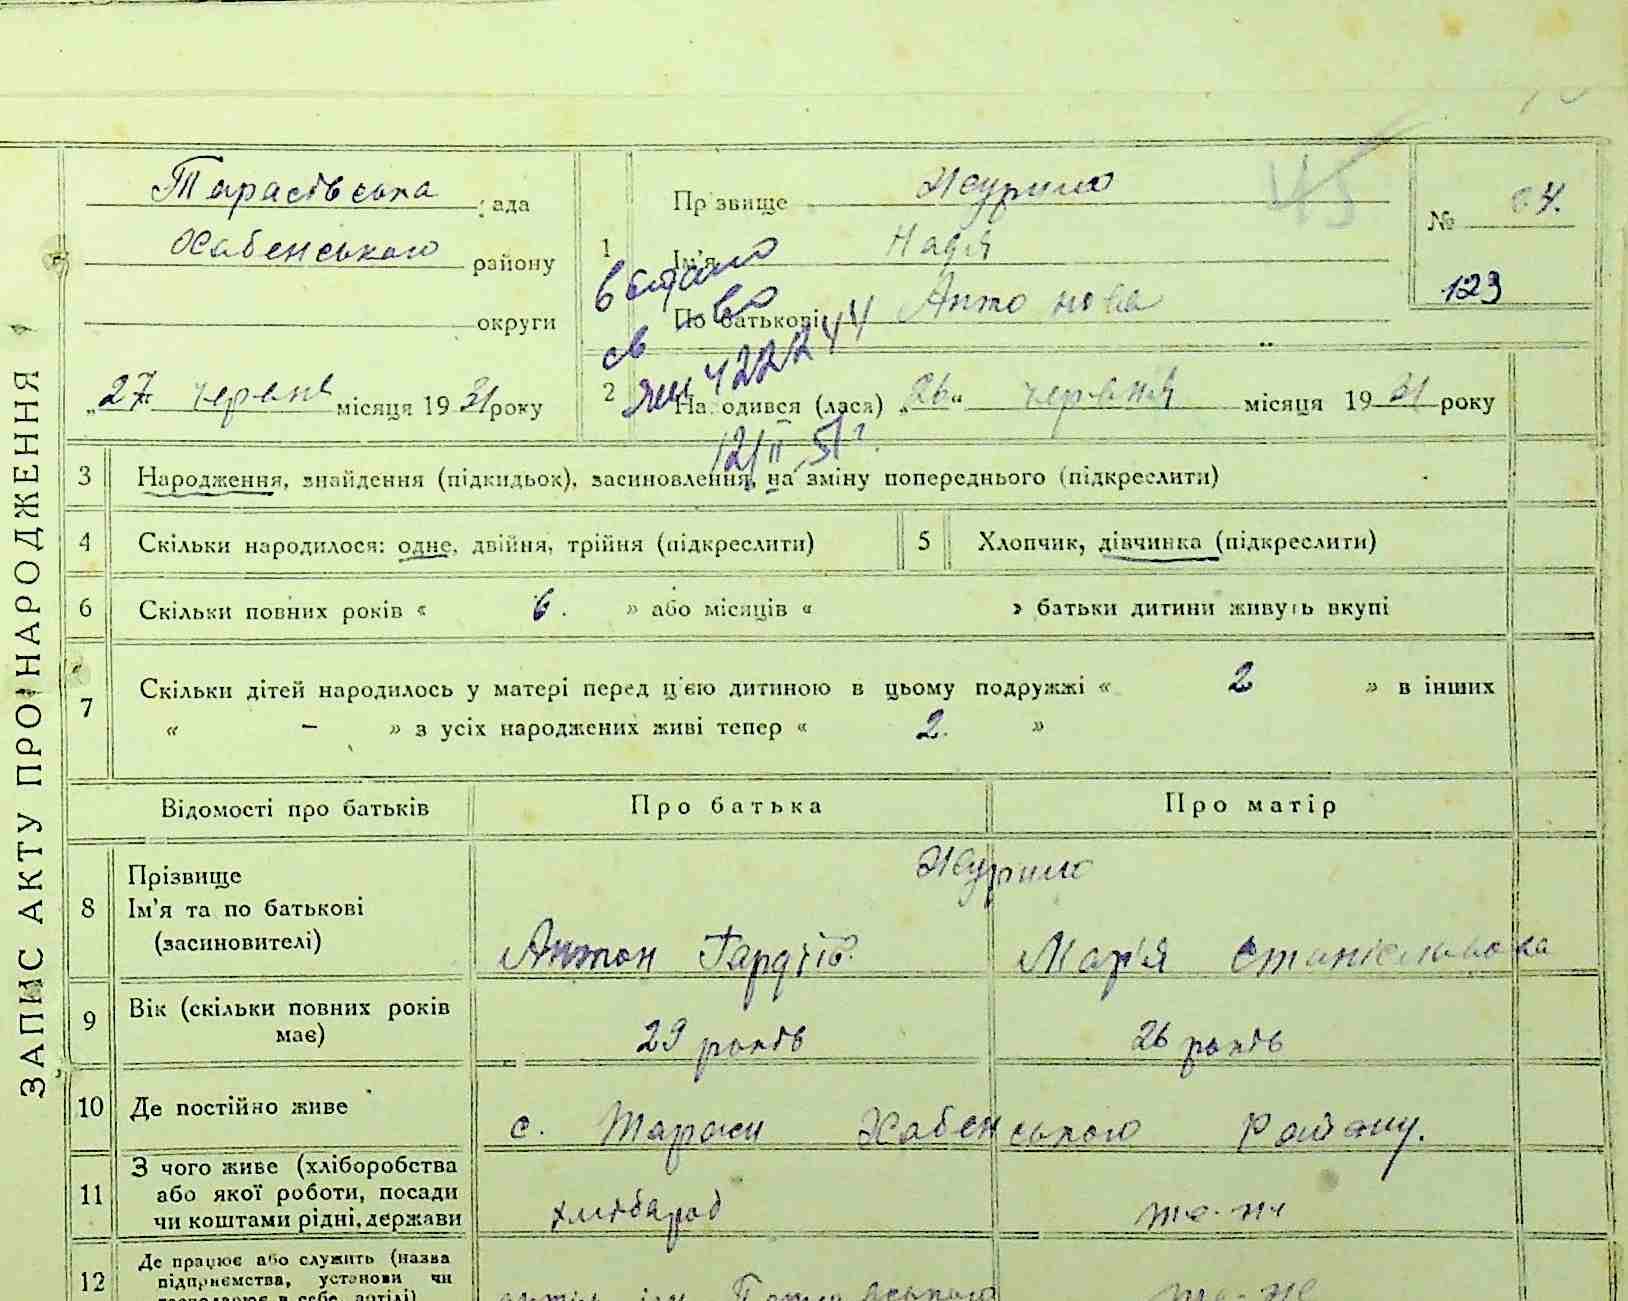 ЗАПИС АКТУ ПРО НАРОДЖЕННЯ
Тарасівська рада
Хабенського району
округи
„27“ червня місяця 1931 року
1
Прізвище Журило
Ім'я Надія
По батькові Антонова
45
№ 64.
123
2
Народився (лася) „26“ червня місяця 1931 року
3 Народження, знайдення (підкидьок), засиновлення, на зміну попереднього (підкреслити)
4 Скільки народилося: одне, двійня, трійня (підкреслити) 5 Хлопчик, дівчинка (підкреслити)
6 Скільки повних років « 6. » або місяців « » батьки дитини живуть вкупі
7 Скільки дітей народилось у матері перед цією дитиною в цьому подружжі « 2 » в інших
« – » з усіх народжених живі тепер « 2. »
Відомості про батьків Про батька Про матір
8 Прізвище
Ім'я та по батькові
(засиновителі)
Журило
Антон Гардіїв. Мар'я Станіславовна
9 Вік (скільки повних років
має)
29 років 26 років
10 Де постійно живе с. Тараси Хабенського Району.
11 З чого живе (хліборобства
або якої роботи, посади
чи коштами рідні, держави
хлібороб то-же
12 Де працює або служить (назва
підприємства, установи чи
то-же